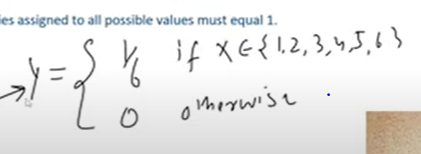 ies assigned to all possible values must equal 1.
y = { 1/6 if x ∈ {1,2,3,4,5,6}
0 otherwise